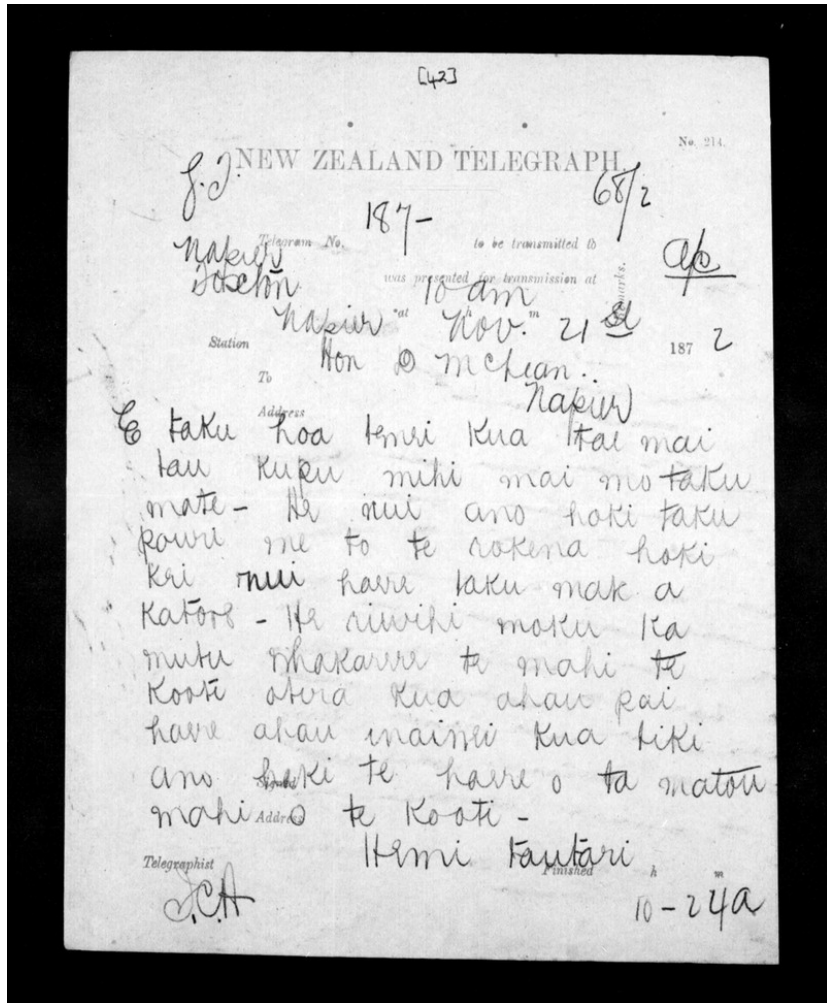 [42]
No. 214.
G.T. NEW ZEALAND TELEGRAPH.
68/2
187-
Telegram No. to be transmitted to
Napier
was presented for transmission at
Remarks.
10 am
Napier at h Nov. m 21st
Station 187 2
Hon D McLean..
To
Napier
Address
E taku hoa tenei kua tae mai
tau kupu mihi mai mo taku
mate - He nui ano hoki taku
pouri me to te rokena hoki
kei nui haere taku mate a
Katore - He moku Ka
mutu Whakarere te mahi te
Kooti otira kua ahau pai
haere ahau inainei kua tika
ano hoki te haere o ta matou
Signed
mahi o te Kooti -
Address
Hemi Tautari
Telegraphist Finished h m
J.C.A 10-24a